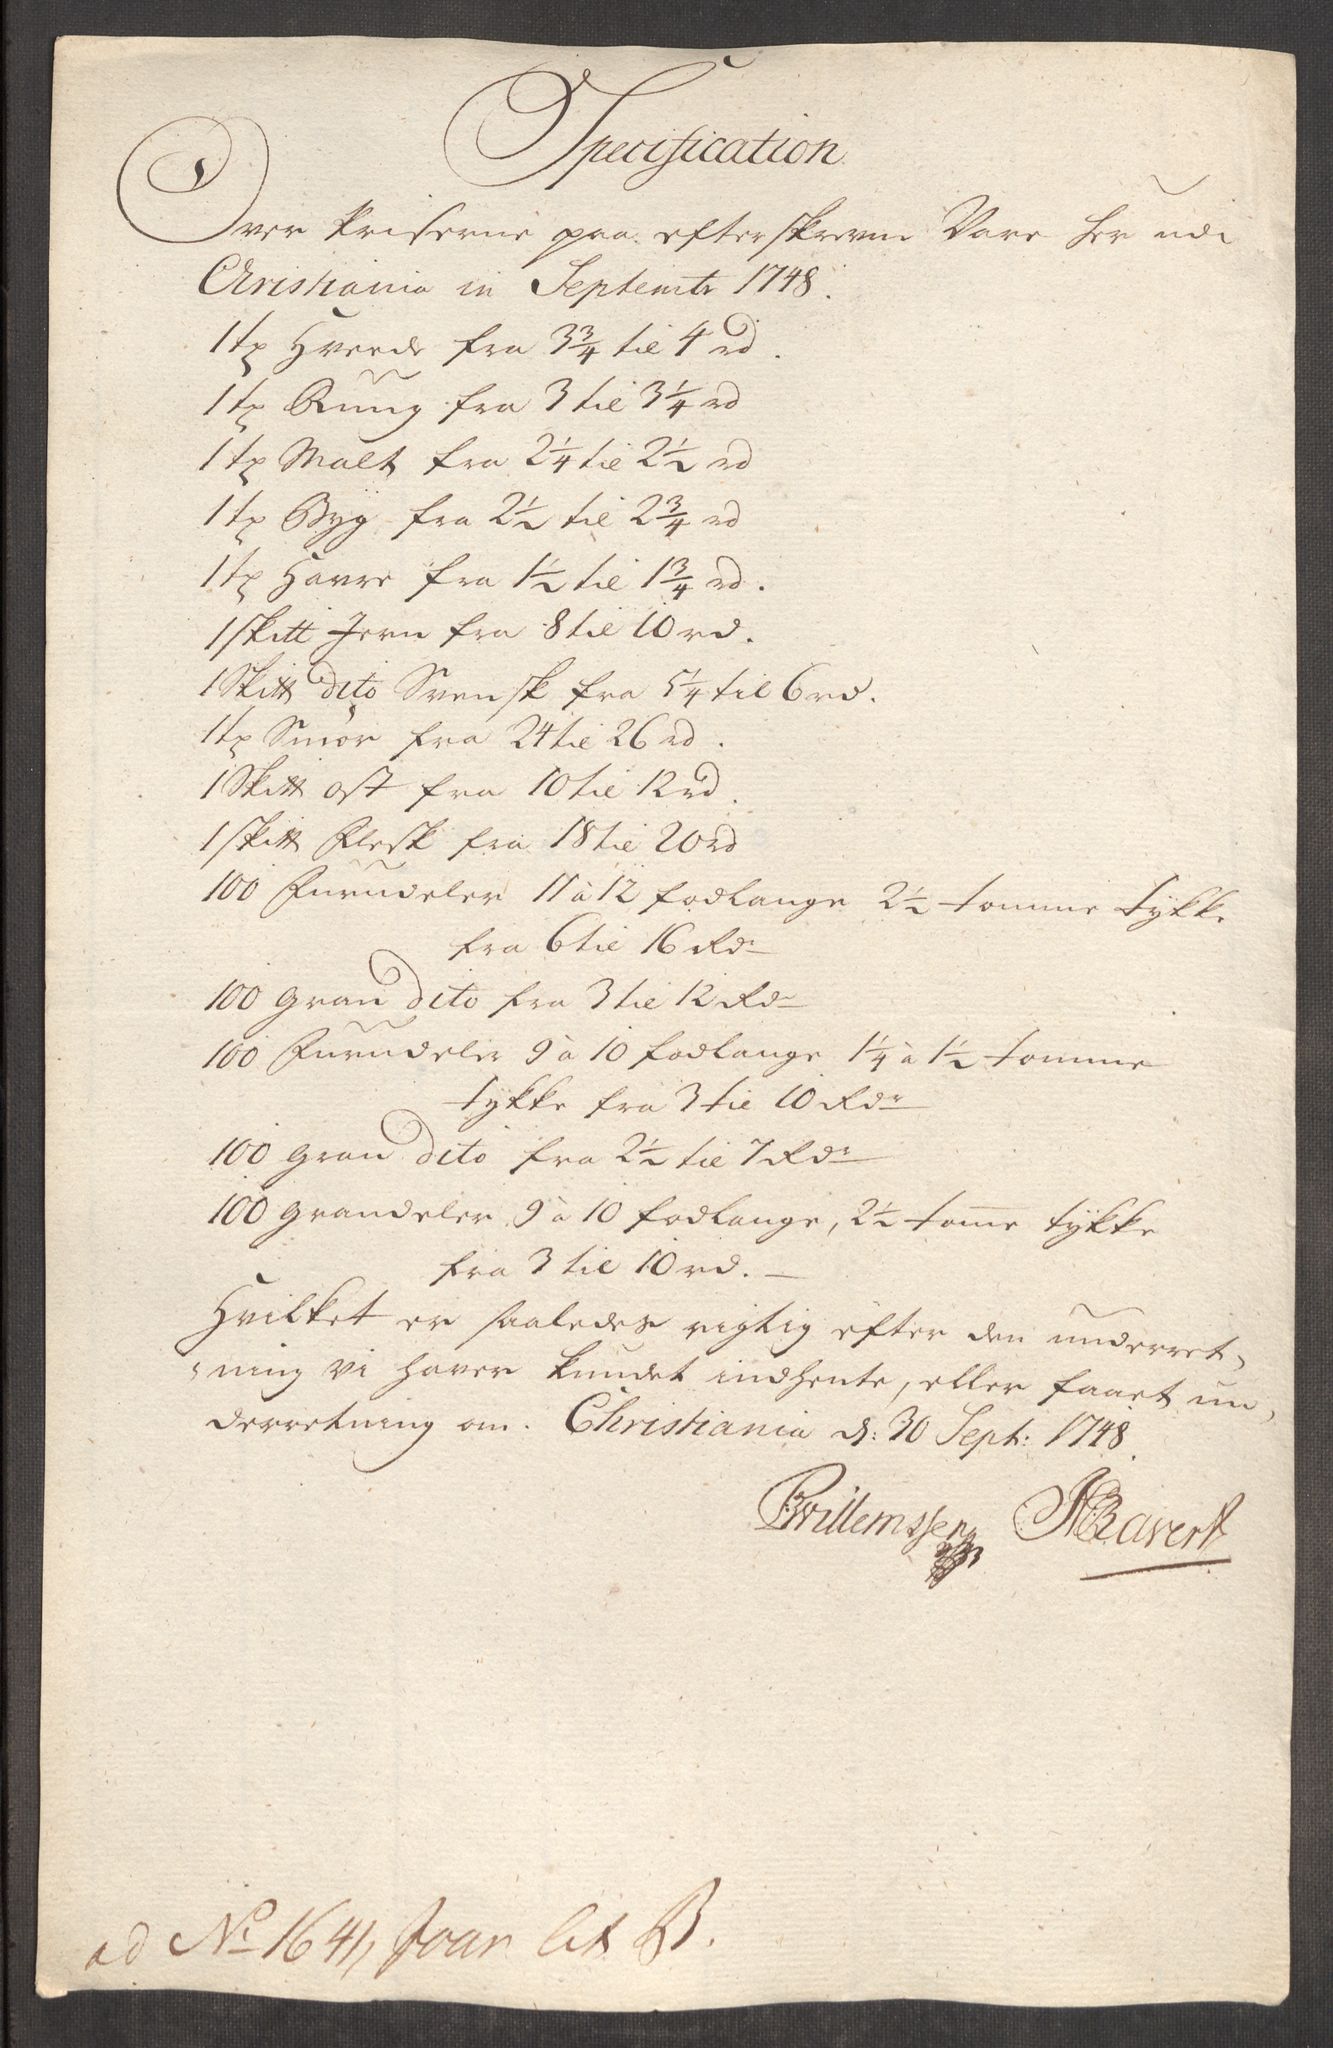 Specification
Over Priserne paa efterskrevne Vare her udi
Christiania in Septembr 1748.
1 tø Hveede fra 3 3/4 til 4 rd.
1 tø Rüug fra 3 til 3 1/4 rd
1 tø Malt fra 2 1/4 til 2 1/2 rd
1 tø Byg fra 2 1/2 til 2 3/4 rd
1 tø Havre fra 1 1/2 til 1 3/4 rd.
1 skitt Jern fra 8 til 10 rd.
1 Skitt dito Svensk fra 5 1/4 til 6 rd.
1 tø Smør fra 24 til 26 rd.
1 Skitt ost fra 10 til 12 rd.
1 skitt Flesk fra 18 til 20 rd
100 Furudeler 11 à 12 fodlange 2 1/2 tomme tykke
fra 6 til 16 Rdr
100 gran dito fra 3 til 12 Rdr
100 Furudeler 9 à 10 fodlange 1 1/4 à 1 1/2 tomme
tykke fra 3 til 10 Rdr
100 gran dito fra 2 1/2 til 7 Rdr
100 grandeler 9 à 10 fodlange, 2 1/2 tome tykke
fra 3 til 10 rd.
Hvilket er saaledes rigtig efter den underret-
ning vi haver kundet indhente, eller faaet un-
derretning om. Christiania d: 30 Sept: 1748
Willemssen Ravert
ad No 1641, lit B.